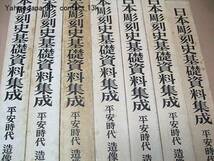 Yahoo! Japan
日本彫刻史基礎資料集成 平安時代 造像
日本彫刻史基礎資料集成 平安時代 造像
日本彫刻史基礎資料集成 平安時代 造像
日本彫刻史基礎資料集成 平安時代 造像
日本彫刻史基礎資料集成 平安時代 造像
日本彫刻史基礎資料集成 平安時代 造像
日本彫刻史基礎資料集成 平安時代 造像